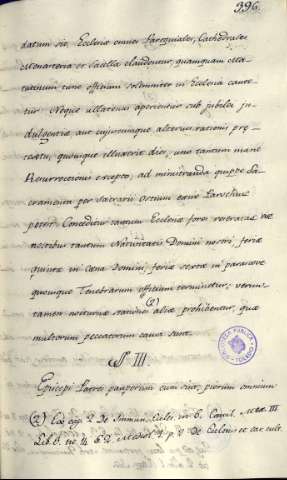 396.
datum sit, Ecclesiæ omnes Parroquiales, Cathedrales
Monasteria et Sacella claudentur, quamquam
tunc officium solemniter in Ecclesia cante-
tur. Neque ullatenus aperientur sub jubilei in-
dulgentiæ aut cujuscumque alterius rationi præ-
textu, quousque illuxerit dies, uno tantum mane
Resurrectionis excepto, ad ministranda quippe Sa-
cramenta per Sacrarii Ostium exire Parochus
poterit. Conceditur tantum Ecclesiæ fores reseratas
noctibus tantum Nativitatis Domini nostri, feriæ
quintæ in Cœna Domini, feriæ sextæ in parasceve
quousque Tenebrarum officium terminetur; verum-
tamen nocturnæ stationes aliæ prohibentur, quæ
multorum peccatorum causa sunt.
(2)
§ III.
Episcopi Patres pauperum cum sint, puerum omnium
(2) Lex 2 de Immun. Eccles. in 6. Concil. III
Lib. 6. 4 6 2. 4 p. 2 de
BIBLIOTECA PUBLICA
TOLEDO